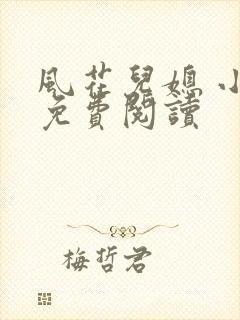 風花兒媳 小
免費閱讀
梅哲君